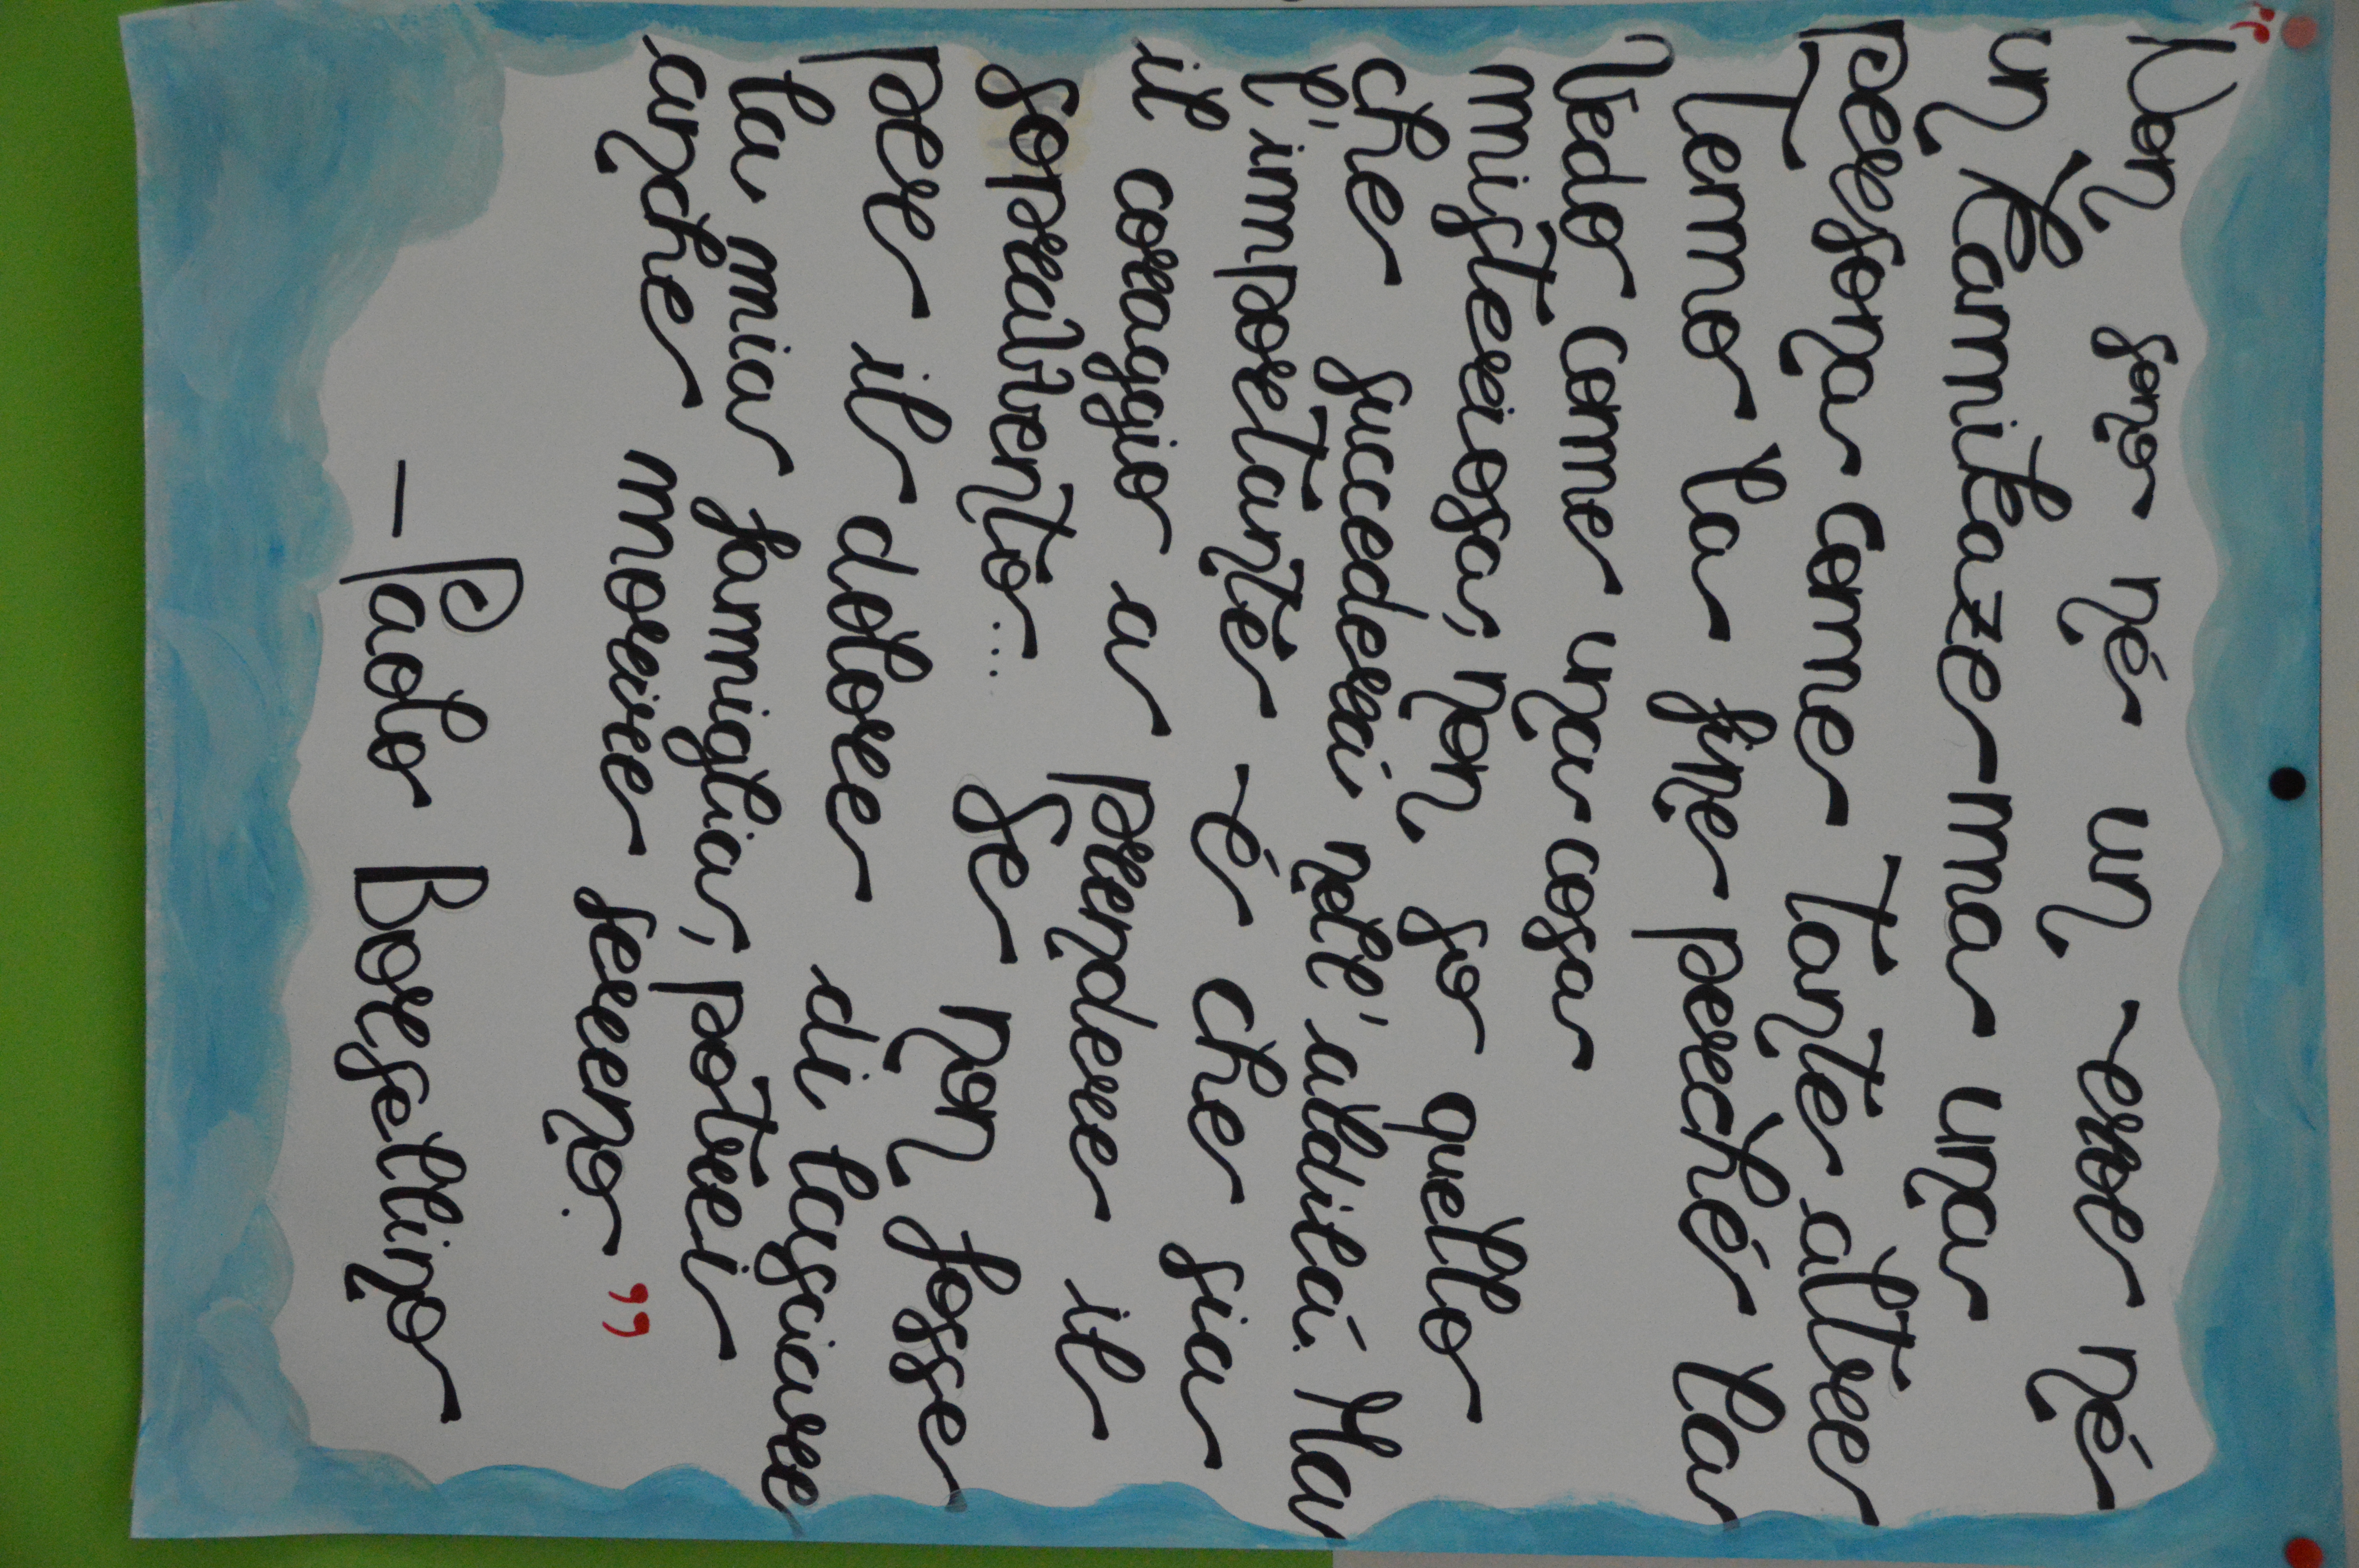 “
Non sono né un eroe né
un Kamikaze ma una
persona come tante altre
Temo la fine perché la
Vedo come una cosa
misteriosa, non so quello
che succederai nell'aldilá. Ma
l'importante é che sia
il coraggio a prendere il
sopravvento... Se non fosse
per il dolore di lasciare
la mia famiglia, potrei
anche morire sereno. ”
– Paolo Borsellino